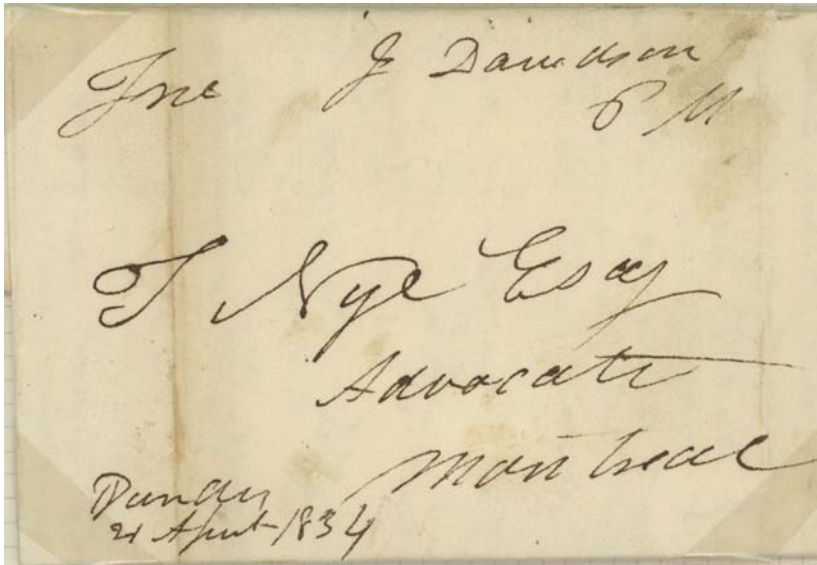 Free J Davidson
P M
T Nye Esqr
Advocate
Montreal
Dundee
21 April 1834